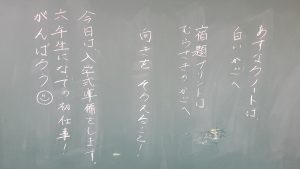 あすなろノートは、
白いかごへ
宿題プリントは
むらさきのかごへ
向きを そろえること！
今日は入学式準備をします。
六年生になって初仕事！
がんばろう☺